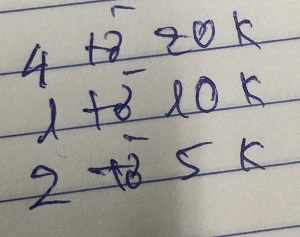 4 tờ 20 K
1 tờ 10 K
2 tờ 5 K